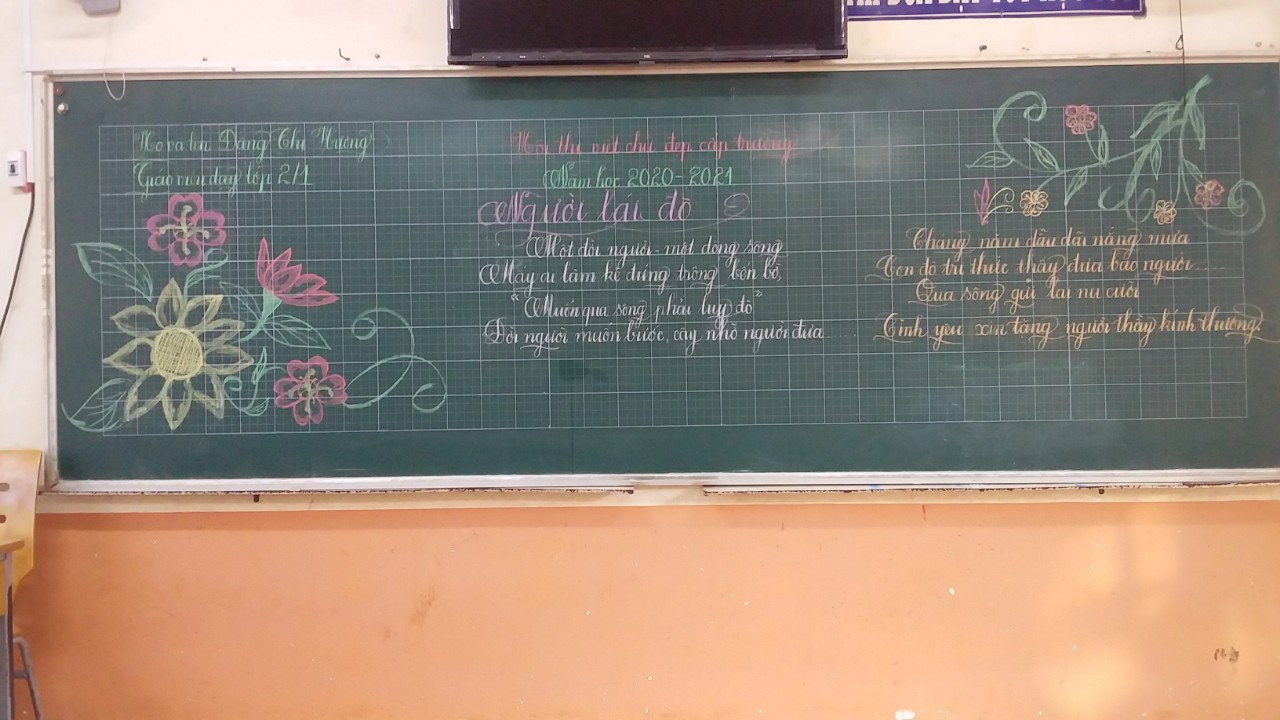 Họ và tên Đặng Thị Hường
Giáo viên dạy lớp 2/1
Hội thi viết chữ đẹp cấp trường
Năm học 2020-2021
Người lái đò
Một đời người - một dòng sông
Mấy ai làm kẻ đứng trông bến bờ,
"Muốn qua sông phải lụy đò"
Đời người muôn bước cậy nhờ người đưa
Tháng năm dầu dãi nắng mưa
Con đò tri thức thầy đưa bao người.....
Qua sông gửi lại nụ cười
Tình yêu xin tặng người thầy kính thương.